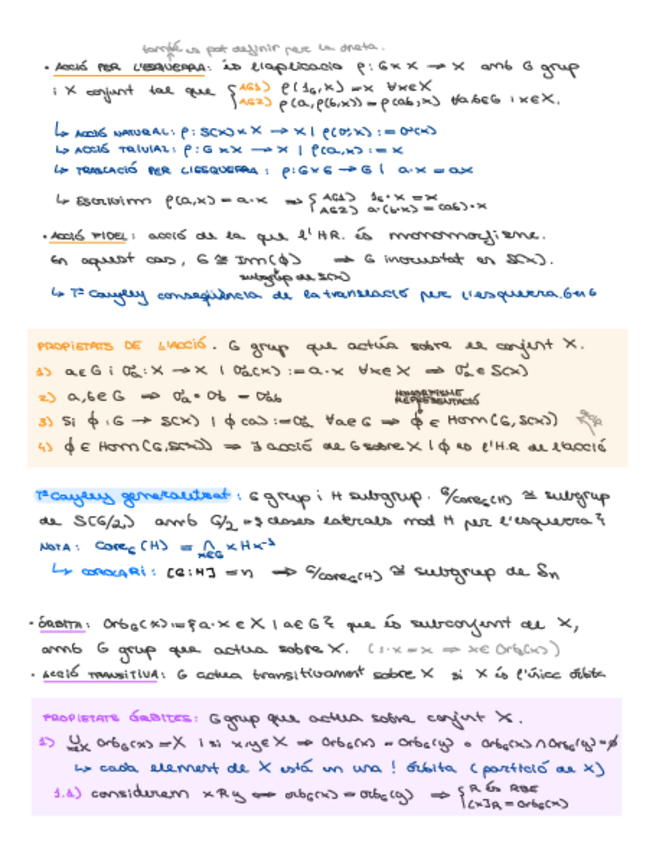 també es pot definir per la dreta.
• ACCIÓ PER L'ESQUERRA: és l'aplicació ρ: G×X → X amb G grup
i X conjunt tal que { AG1) ρ(1_G,x)=x ∀x∈X
AG2) ρ(a,ρ(b,x))=ρ(ab,x) ∀a,b∈G i x∈X.
↳ ACCIÓ NATURAL: ρ: S(X)×X → X | ρ(σ,x) := σ(x)
↳ ACCIÓ TRIVIAL: ρ: G×X → X | ρ(a,x) := x
↳ TRASLACIÓ PER L'ESQUERRA: ρ: G×G → G | a·x = ax
↳ Escrivim ρ(a,x) = a·x ⇒ { AG1) 1_G·x = x
AG2) a·(b·x) = (ab)·x
• ACCIÓ FIDEL: acció de la que l'HR. és monomorfisme.
En aquest cas, G ≅ Im(ϕ) ⇒ G incrustat en S(X).
subgrup de S(X)
↳ Tª Cayley conseqüència de la translació per l'esquerra G en G
PROPIETATS DE L'ACCIÓ. G grup que actúa sobre el conjunt X.
1) a∈G i σₐ: X → X | σₐ(x) := a·x ∀x∈X ⇒ σₐ ∈ S(X)
2) a,b∈G ⇒ σₐ∘σ_b = σ_ab
HOMOMORFISME
REPRESENTACIÓ
3) Si ϕ: G → S(X) | ϕ(a) := σₐ ∀a∈G ⇒ ϕ ∈ Hom(G,S(X))
4) ϕ ∈ Hom(G,S(X)) ⇒ ∃ acció de G sobre X | ϕ és l'H.R de l'acció
Tª Cayley generalitzat: G grup i H subgrup. G/Core_G(H) ≅ subgrup
de S(G/2) amb G/2 = { classes laterals mod H per l'esquerra }
NOTA: Core_G(H) = ∩ xHx⁻¹
x∈G
↳ COROLARI: [G:H] = n ⇒ G/Core_G(H) ≅ subgrup de Sn
• ÒRBITA: Orb_G(x) := {a·x ∈ X | a∈G} que és subconjunt de X,
amb G grup que actua sobre X. (1·x = x ⇒ x∈Orb_G(x))
• ACCIÓ TRANSITIVA: G actua transitivament sobre X si X és l'única òrbita
PROPIETATS ÒRBITES: G grup que actua sobre conjunt X.
1) ∪ Orb_G(x) = X i si x,y∈X ⇒ Orb_G(x) = Orb_G(y) o Orb_G(x)∩Orb_G(y)=∅
x∈X
↳ cada element de X está en una ! òrbita (partició de X)
1.1) considerem x R y ⇔ orb_G(x) = orb_G(y) ⇒ { R és RBE
[x]_R = Orb_G(x)